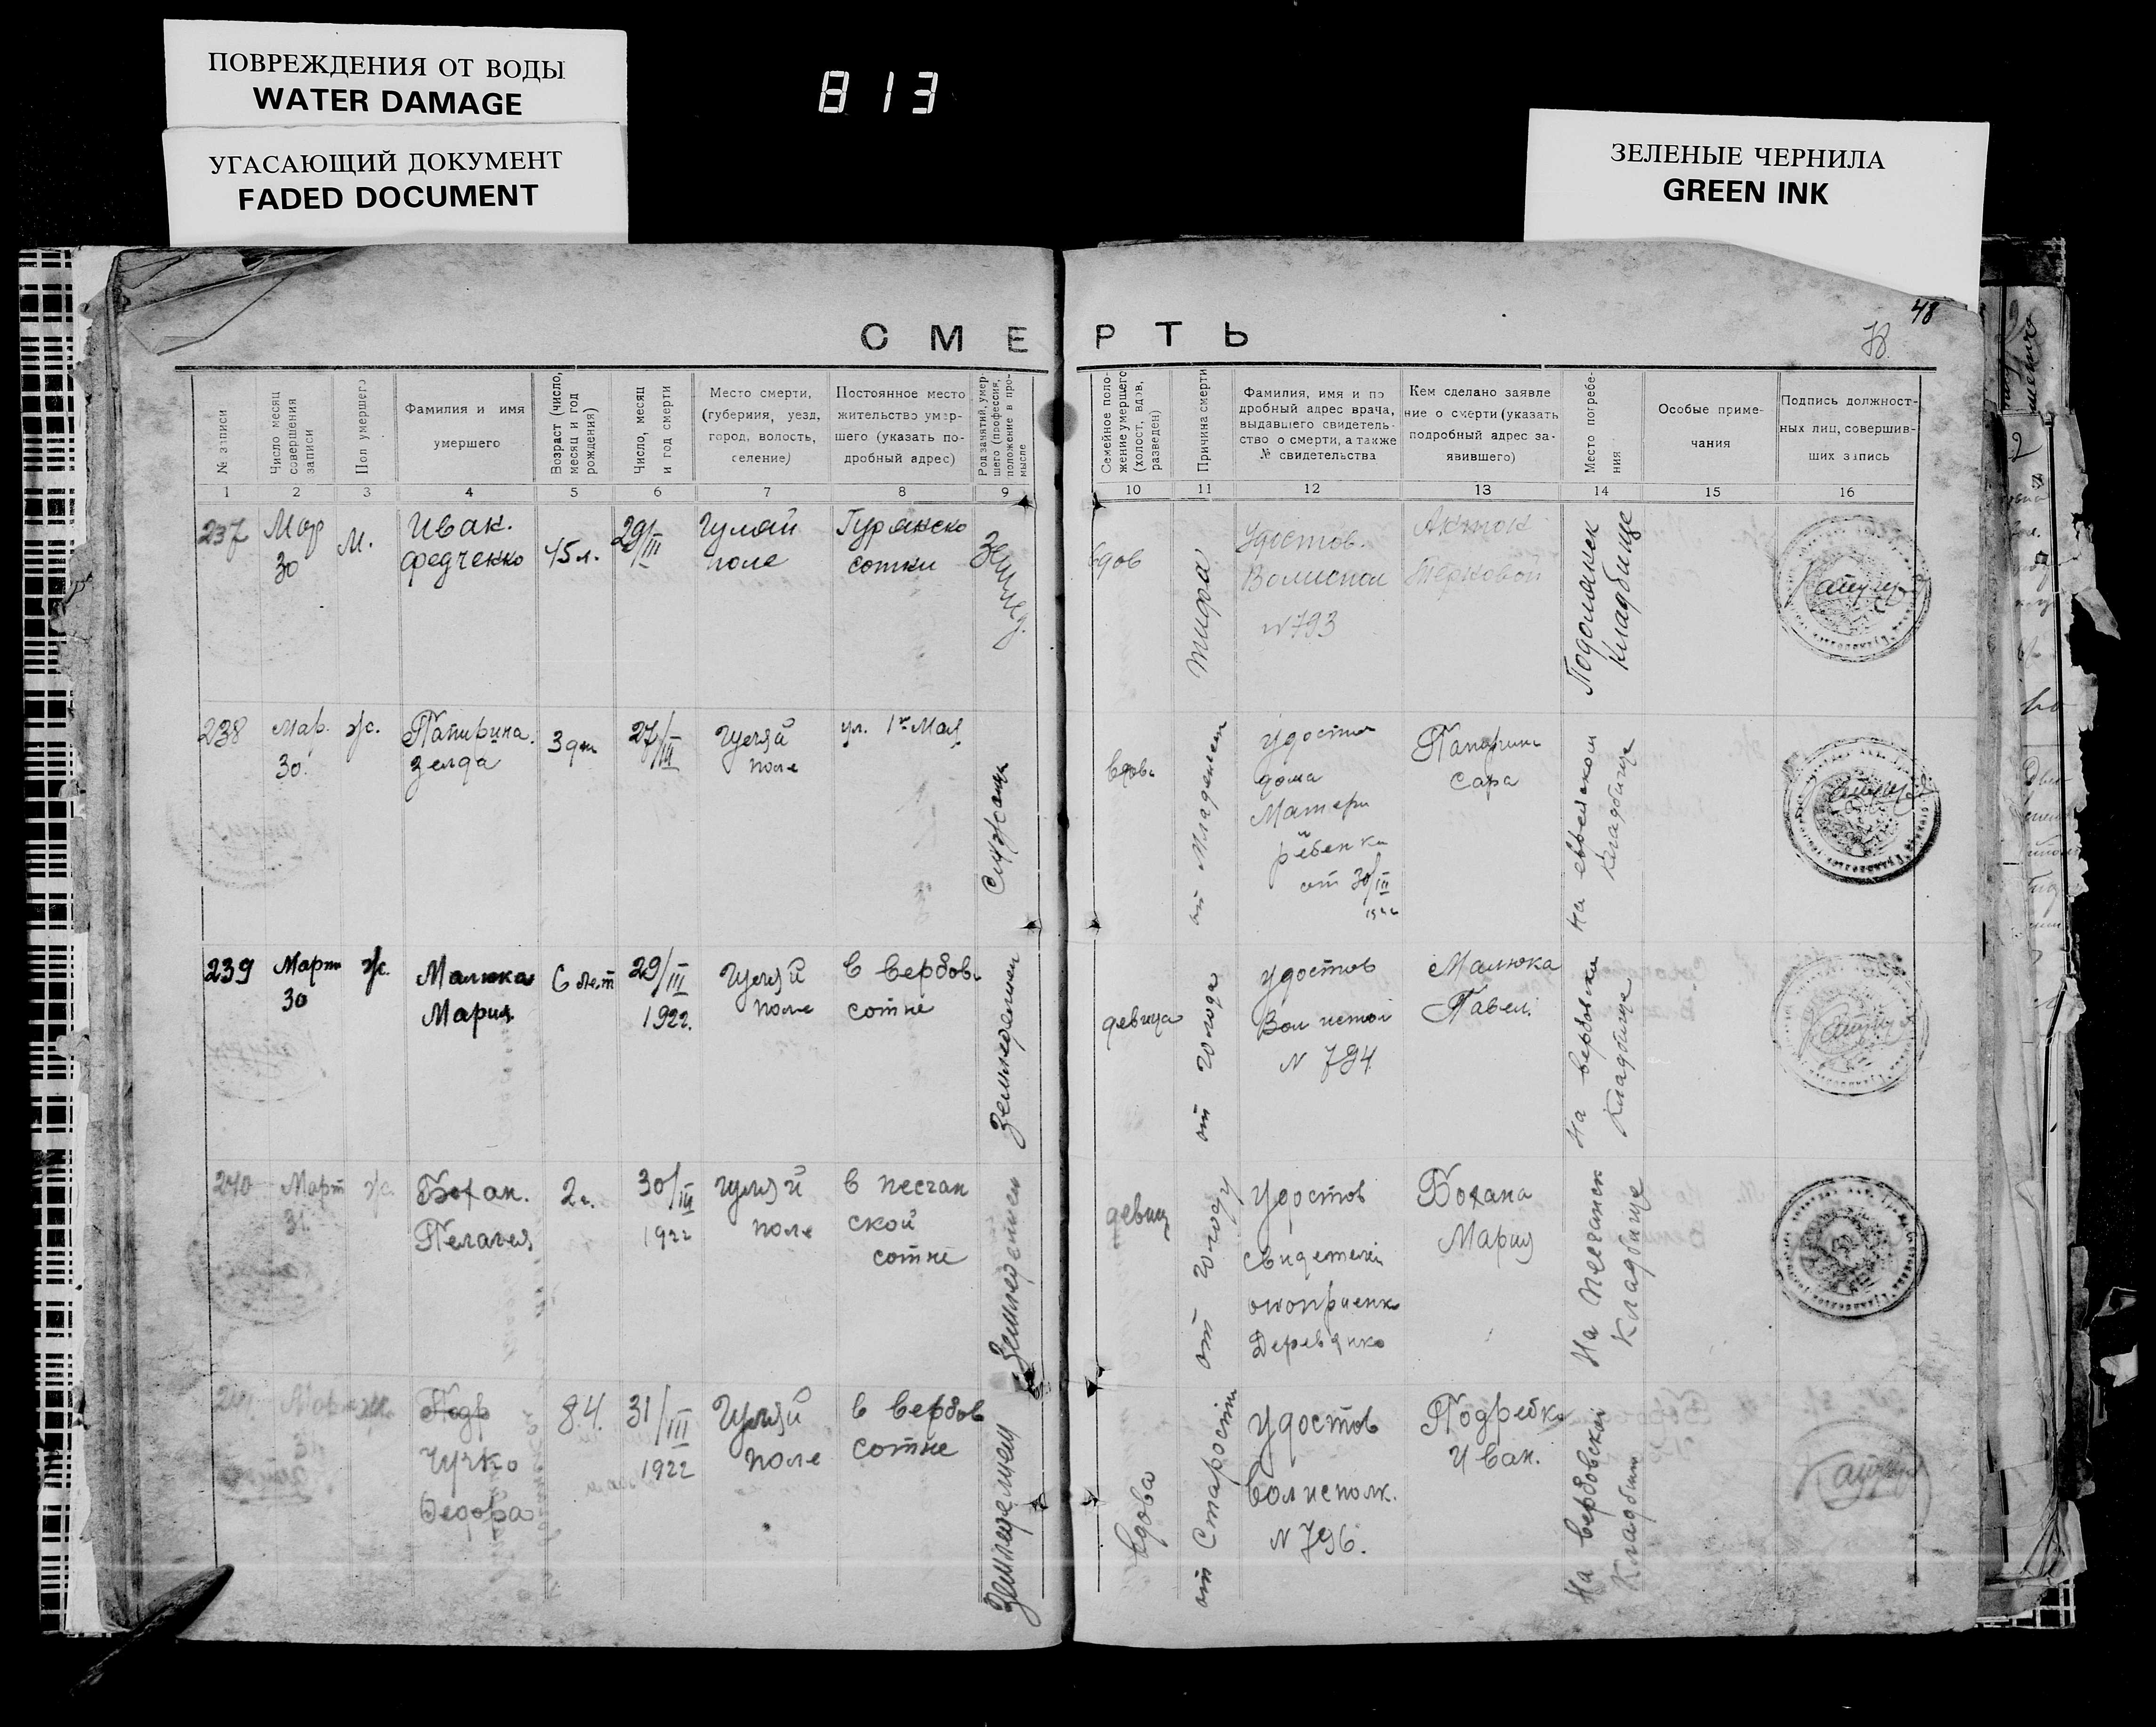 ПОВРЕЖДЕНИЯ ОТ ВОДЫ
WATER DAMAGE
УГАСАЮЩИЙ ДОКУМЕНТ
FADED DOCUMENT
813
ЗЕЛЕНЫЕ ЧЕРНИЛА
GREEN INK
48
78
СМЕРТЬ
№ записи
Число месяц
совершения
записи
Пол умершего
Фамилия и имя
умершего
Возраст (число,
месяц и год
рождения)
Число, месяц
и год смерти
Место смерти,
(губерния, уезд,
город, волость,
селение)
Постоянное место
жительство умер-
шего (указать по-
дробный адрес)
Род занятий, умер-
шего (профессия,
положение в про-
мысле
Семейное поло-
жение умершего
(холост, вдов,
разведен)
Причина смерти
Фамилия, имя и по
дробный адрес врача,
выдавшего свидетель-
ство о смерти, а также
№ свидетельства
Кем сделано заявле
ние о смерти (указать
подробный адрес за-
явившего)
Место погребе-
ния
Особые приме-
чания
Подпись должност-
ных лиц, совершив-
ших запись
1 2 3 4 5 6 7 8 9 10 11 12 13 14 15 16
237
Мар
30
М.
Иван.
Федченко
45 л.
29/III
Гуляй
поле
Гурянско
сотни
вдов
тифа
Удостов.
N 793
Антон
Терновой
Кладбище
238
Мар.
30.
ж.
Папирина.
Зелда
3 дн
27/III
Гуляй
поле
ул. 1го Мая
Служащ
вдов.
от младенчест
Удостов
дома
Матери
ребенка
от 30/III
1922
Сара
На еврейском
кладбище
239
Март
30
ж.
Малюка
Мария
6 лет
29/III
1922.
Гуляй
поле
в вербов.
сотне
Земледелием
девица
от голода
Удостов
N 794
Малюка
Павел.
На вербовском
Кладбище
240
Март
31.
ж.
Бохан.
Пелагея
2 г.
30/III
1922
Гуляй
поле
в песчан
ской
сотне
Земледелием
девиц
от голоду
Удостов
Свидетели
оноприенк
Деревянко
Бохана
Мария
На песчанск
Кладбище
241
Мар
ж.
Федора
84.
31/III
1922
Гуляй
поле
в вербов
сотне
Земледелием
вдова
от Старости
Удостов
Волисполк.
N 796.
Иван.
На вербовской
Кладбищ